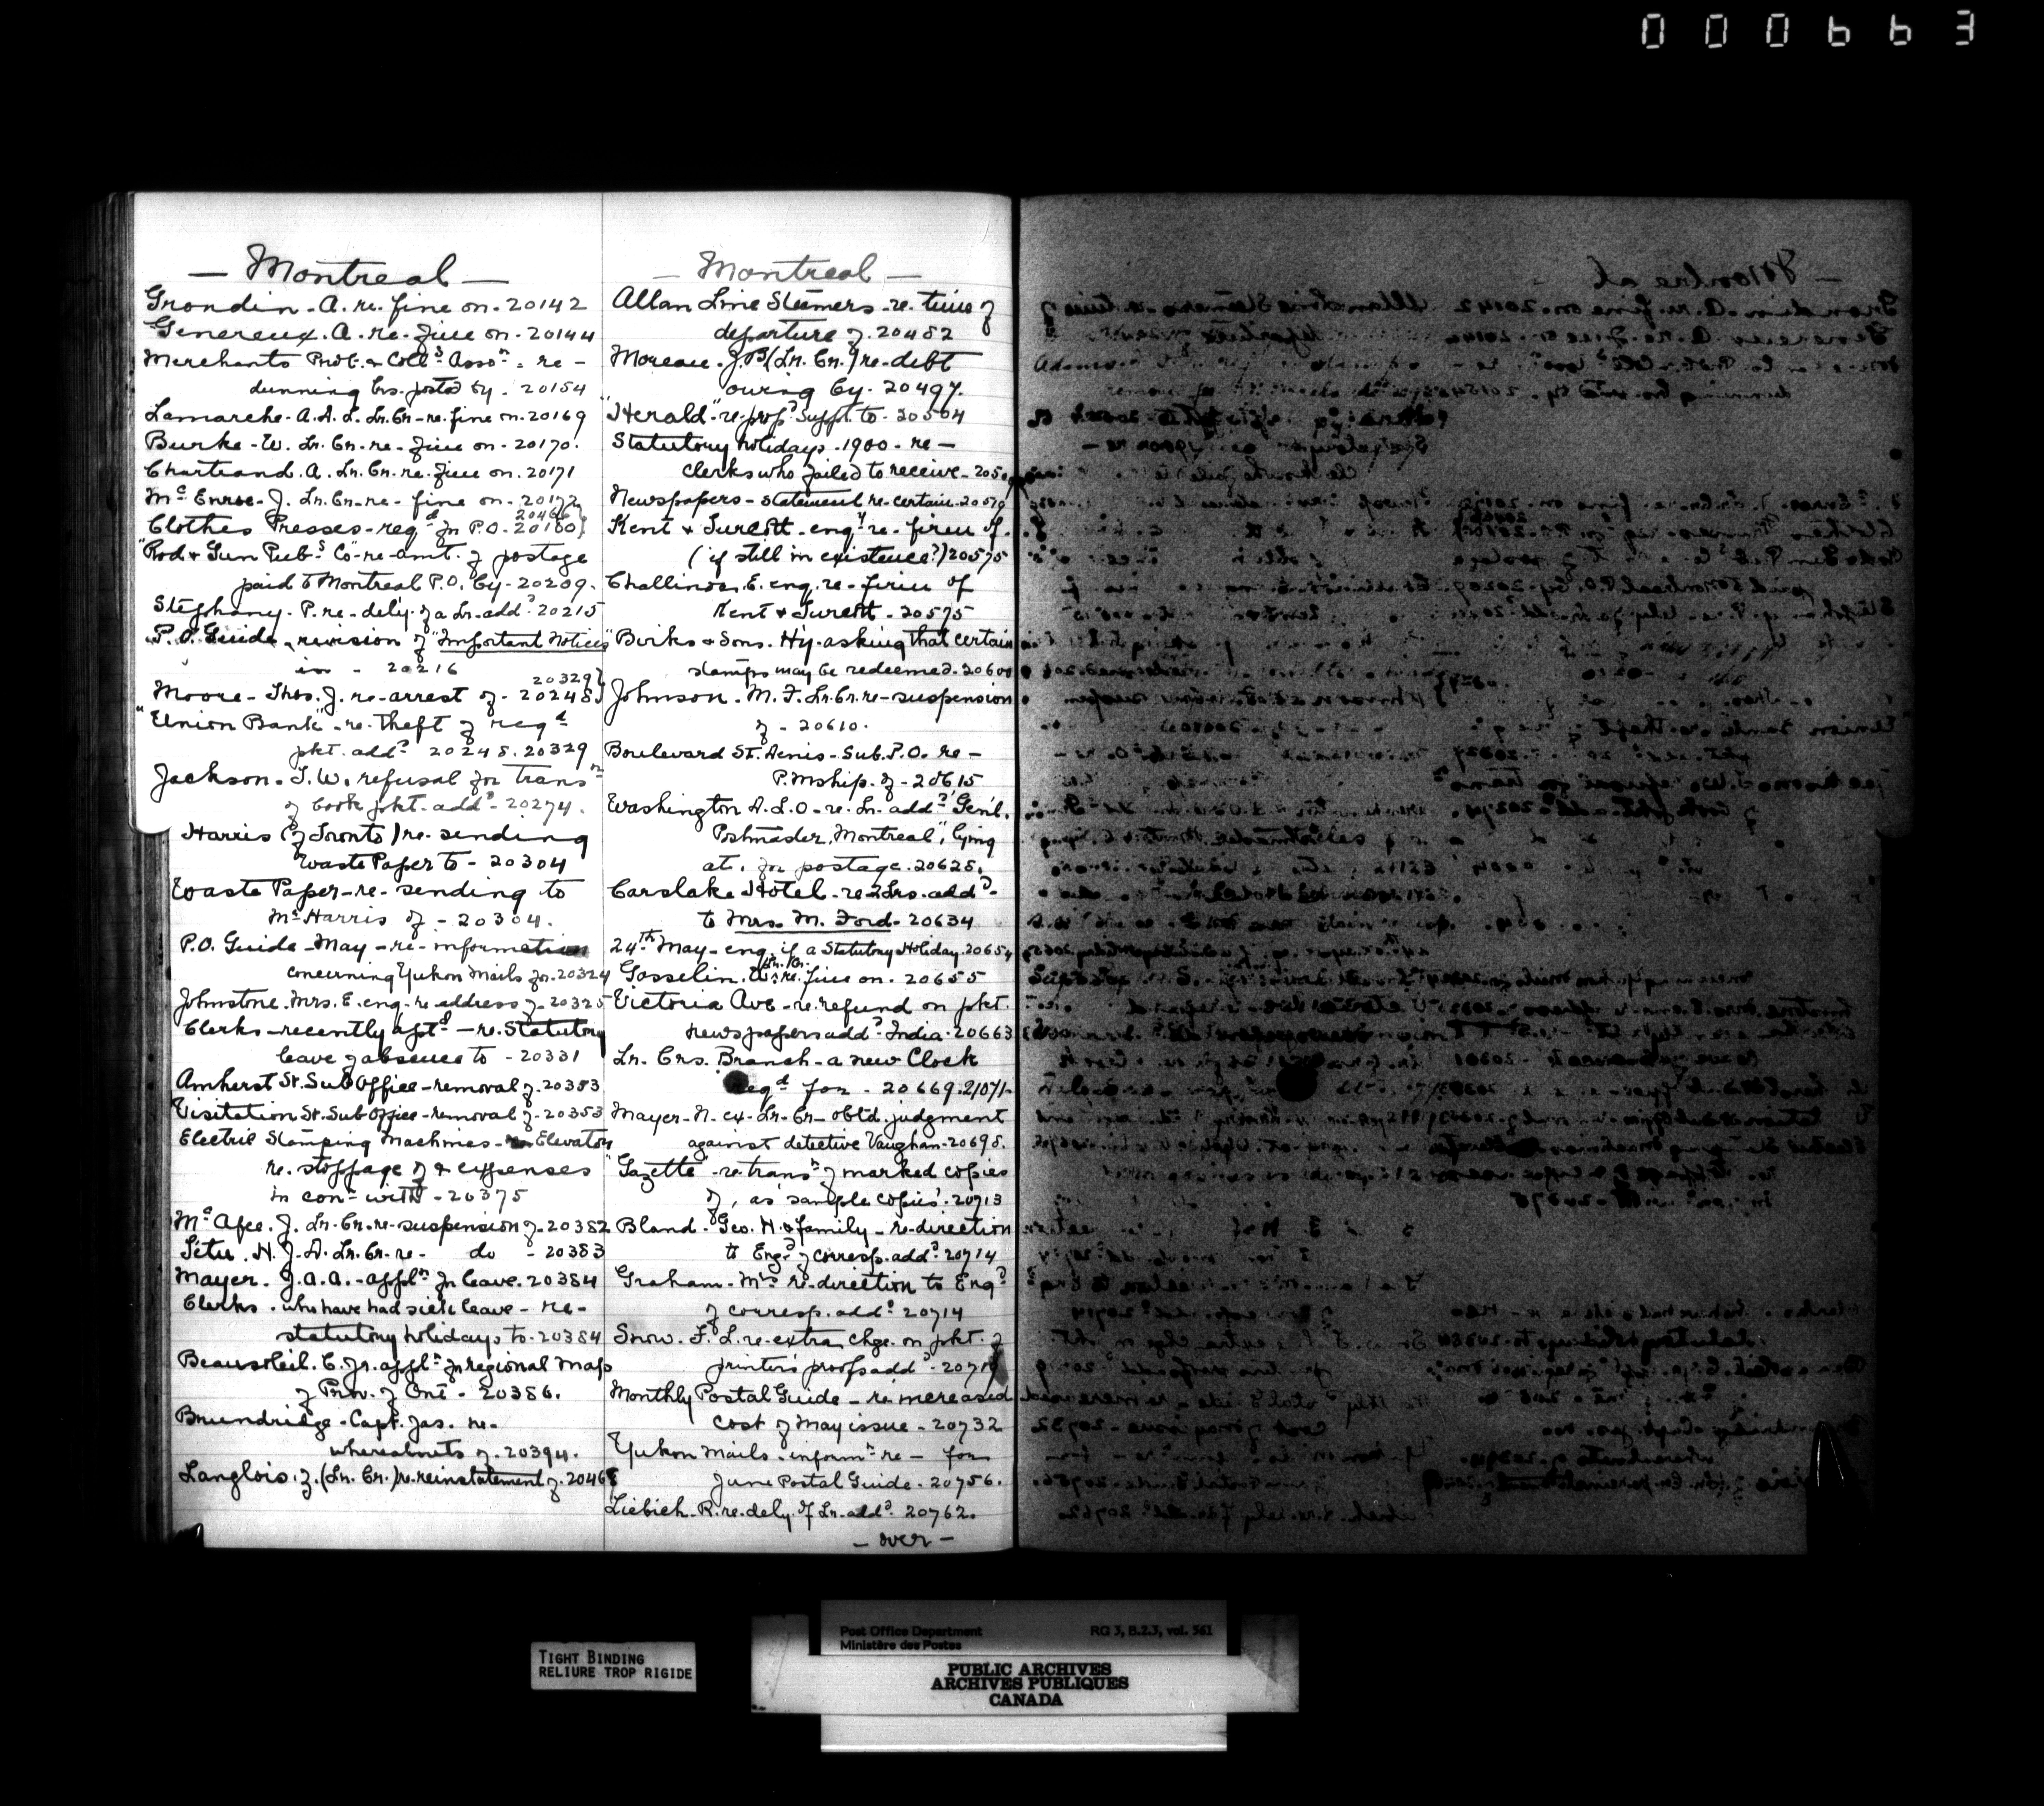 000663
— Montreal —
Grondin. A. re. fine on. 20142
Genereux. A. re. fine on. 20144
Merchants Prot. & Coll.g Asso.n = re —
dunning Lrs. posted by. 20154
Lamarche. A. A. L. Lr. Cr. re. fine on. 20169
Burke. W. Lr. Cr. re. fine on. 20170.
Chartrand. A. Lr. Cr. re. fine on. 20171
Mc Enroe. J. Lr. Cr. re. fine on. 20172
20466
Clothes Presses - reqd for P.O. 20180
"Rod & Gun Pub.g Co" re. amt. of postage
paid to Montreal P.O. by. 20209.
Stephany. P. re. dely. of a Lr. addd 20215
P.O. Guide, revision of "Important Notices"
in - 20216
20329
Moore - Thos. J. re. arrest of - 20248
"Union Bank" re. theft of regd
pkt. addd 20248. 20329
Jackson. T. W. refusal for transn
of book pkt. addd 20274.
Harris (of Toronto) re. sending
Waste Paper to - 20304
Waste Paper - re. sending to
Mr Harris of - 20304.
P.O. Guide - May - re. information
concerning Yukon Mails for. 20324
Johnstone. Mrs. E. enq. re. address of. 20325
Clerks - recently aptd — re. Statutory
leave of absence to - 20331
Amherst St. Sub Office - removal of. 20353
Visitation St. Sub Office - removal of. 20353
Electric Stamping Machines - Elevator
re. stoppage of & expenses
in conn with - 20375
Mc Afee. J. Lr. Cr. re. suspension of. 20382
H. J. A. Lr. Cr. re. do - 20383
Mayer. J. A. A. - appln for leave. 20384
Clerks. who have had sick leave - re -
statutory holidays to. 20384
Beausoleil. C. Jr. appln for regional Map
of Prov. of Ont - 20386.
Brundridge - Capt. Jas. re.
whereabouts of. 20394.
Langlois. J. (Lr. Cr.) re. reinstatement of. 20468
— Montreal —
Allan Line Steamers - re. time of
departure of. 20482
Moreau. J. B. (Lr. Cr.) re. debt
owing by. 20497.
"Herald" re. propd suppt. to - 20504
Statutory holidays. 1900 - re —
clerks who failed to receive - 205
Newspapers - statement re. certain. 20570
Kent & Turcott - enqy re. firm of.
(if still in existence?) 20575
Challinor. E. enq. re. firm of
Kent & Turcott - 20575
Birks & Sons. Hy. asking that certain
stamps may be redeemed. 20600
Johnson. M. F. Lr. Cr. re. suspension
of - 20610.
Boulevard St. Denis - Sub. P.O. re —
P.Mship. of - 20615
Washington D.L.O. re. Lr. addd "Genl.
Postmaster, Montreal", lying
at, for postage. 20625.
Carslake Hotel - re 2 Lrs. addd
to Mrs. M. Ford. 20634
24th May - enq. if a Statutory Holiday. 20654
Lr. Cr.
Gosselin. W. re. fine on. 20655
Victoria Ave - re. refund on pkt.
newspapers addd India. 20663
Lr. Crs. Branch - a new Clock
Reqd for - 20669. 21071.
Mayer. N. ex - Lr. Cr - obtd. judgment
against detective Vaughan. 20698.
"Gazette" - re. transn of marked copies
of, as 'sample copies'. 20713
Bland - Geo. H. & family - re-direction
to Engd of corresp. addd 20714
Graham - Mrs re-direction to Engd
of corresp. addd 20714
Snow. F. L. re. extra chge. on pkt. of
printers' proofs addd - 2071
Monthly Postal Guide - re. increased
cost of May issue - 20732
Yukon Mails. informn re — for
June Postal Guide. 20756.
Liebich. R. re. dely. of Lr. addd 20762.
— over —
TIGHT BINDING
RELIURE TROP RIGIDE
Post Office Department RG 3, B.2.3, vol. 561
Ministère des Postes
PUBLIC ARCHIVES
ARCHIVES PUBLIQUES
CANADA